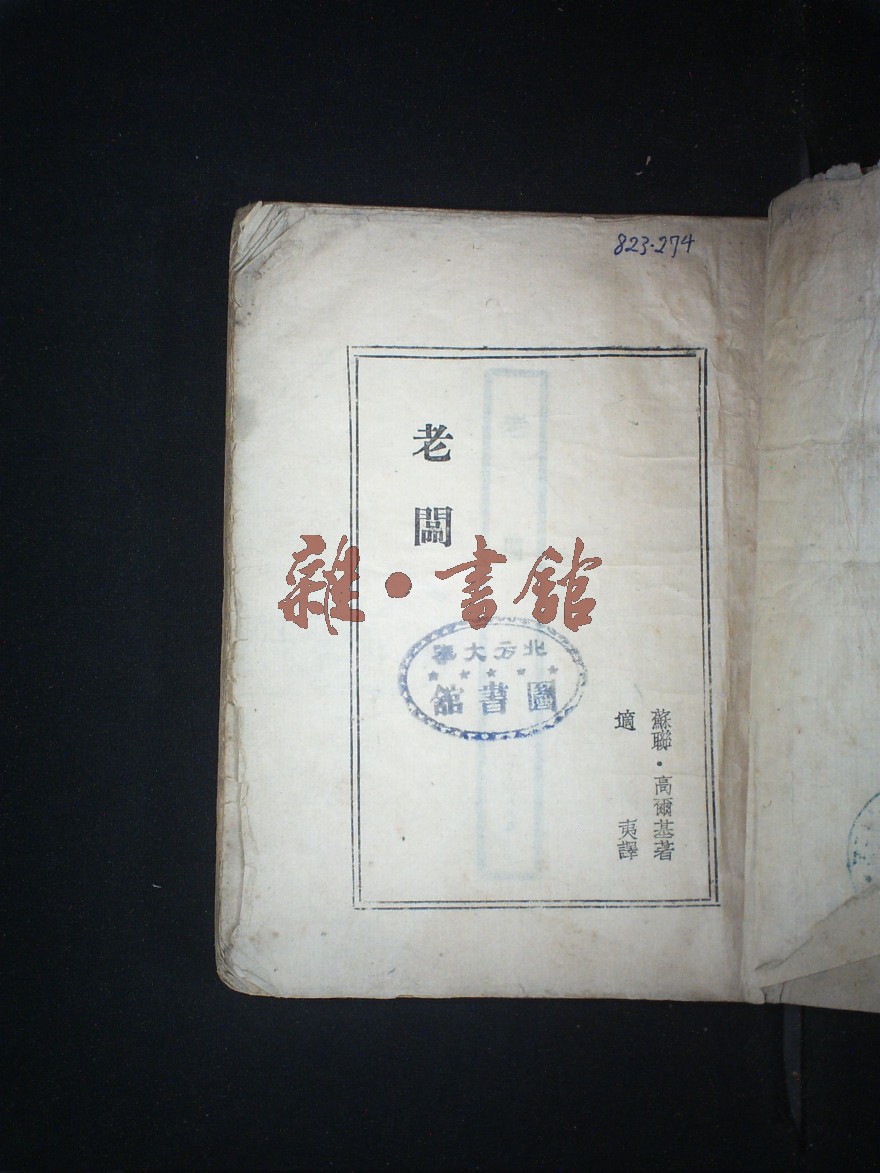 823·274
蘇聯·高爾基著
適 夷譯
老闆
雜·書館
北方大學
圖書館